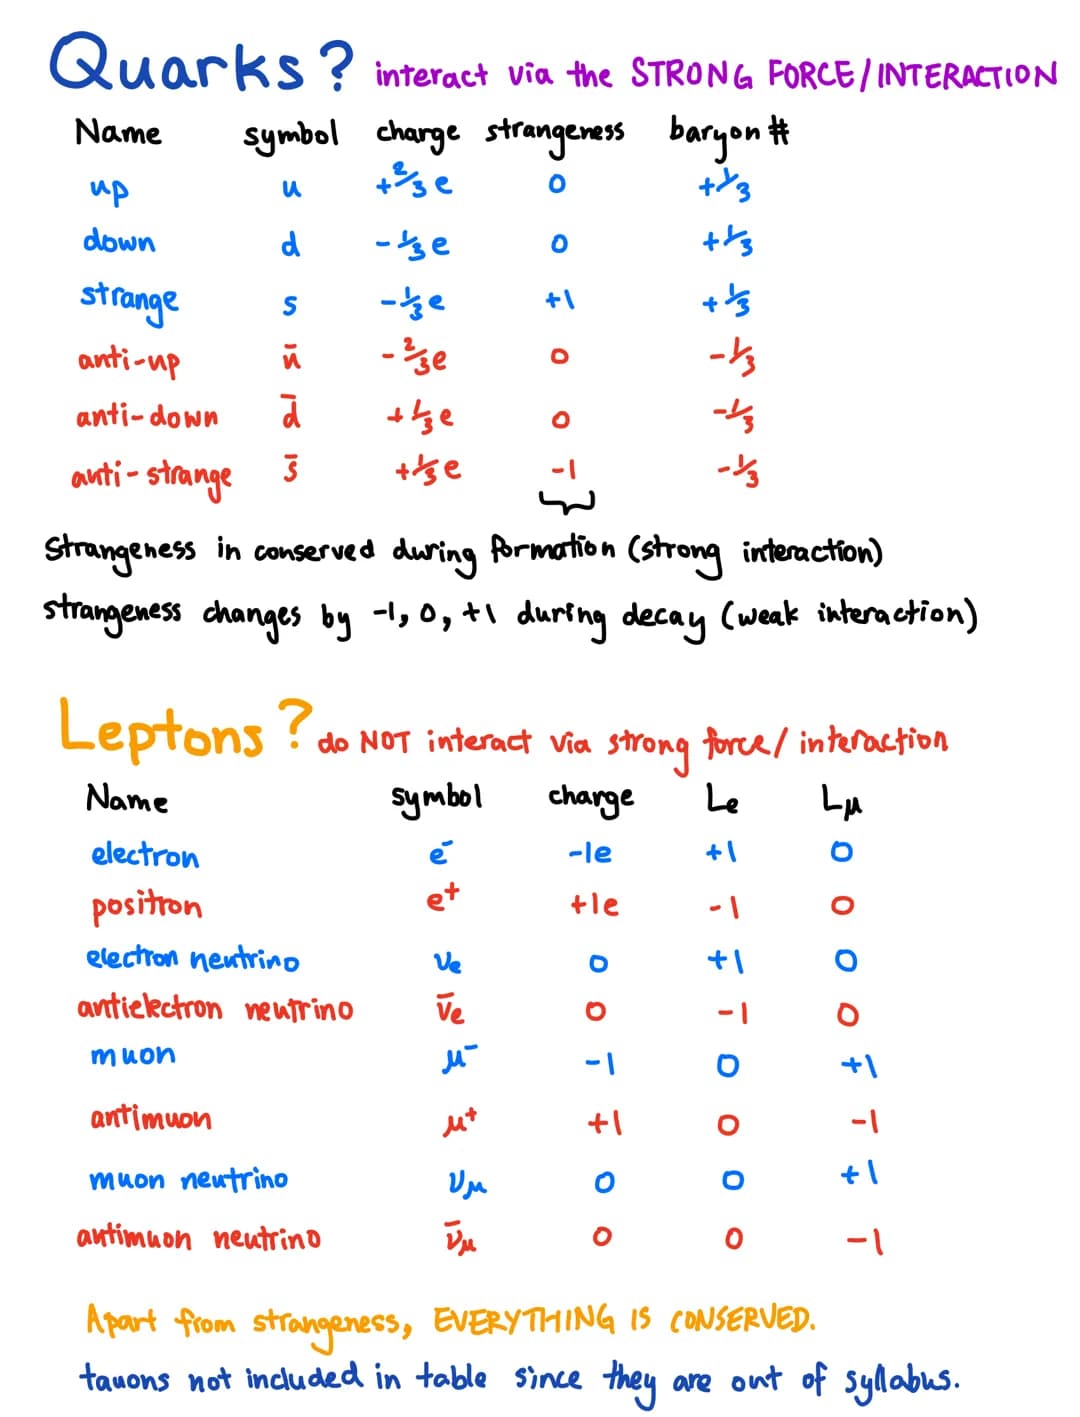 Quarks? interact via the STRONG FORCE/INTERACTION
Name symbol charge strangeness baryon #
up u +2/3 e 0 +1/3
down d -1/3 e 0 +1/3
strange s -1/3 e +1 +1/3
anti-up ū -2/3 e 0 -1/3
anti-down d̄ +1/3 e 0 -1/3
anti-strange s̄ +1/3 e -1 -1/3
Strangeness in conserved during formation (strong interaction)
strangeness changes by -1, 0, +1 during decay (weak interaction)
Leptons? do NOT interact via strong force/interaction
Name symbol charge Le Lμ
electron e⁻ -1e +1 0
positron e⁺ +1e -1 0
electron neutrino νe 0 +1 0
antielectron neutrino ν̄e 0 -1 0
muon μ⁻ -1 0 +1
antimuon μ⁺ +1 0 -1
muon neutrino νμ 0 0 +1
antimuon neutrino ν̄μ 0 0 -1
Apart from strangeness, EVERYTHING IS CONSERVED.
tauons not included in table since they are out of syllabus.